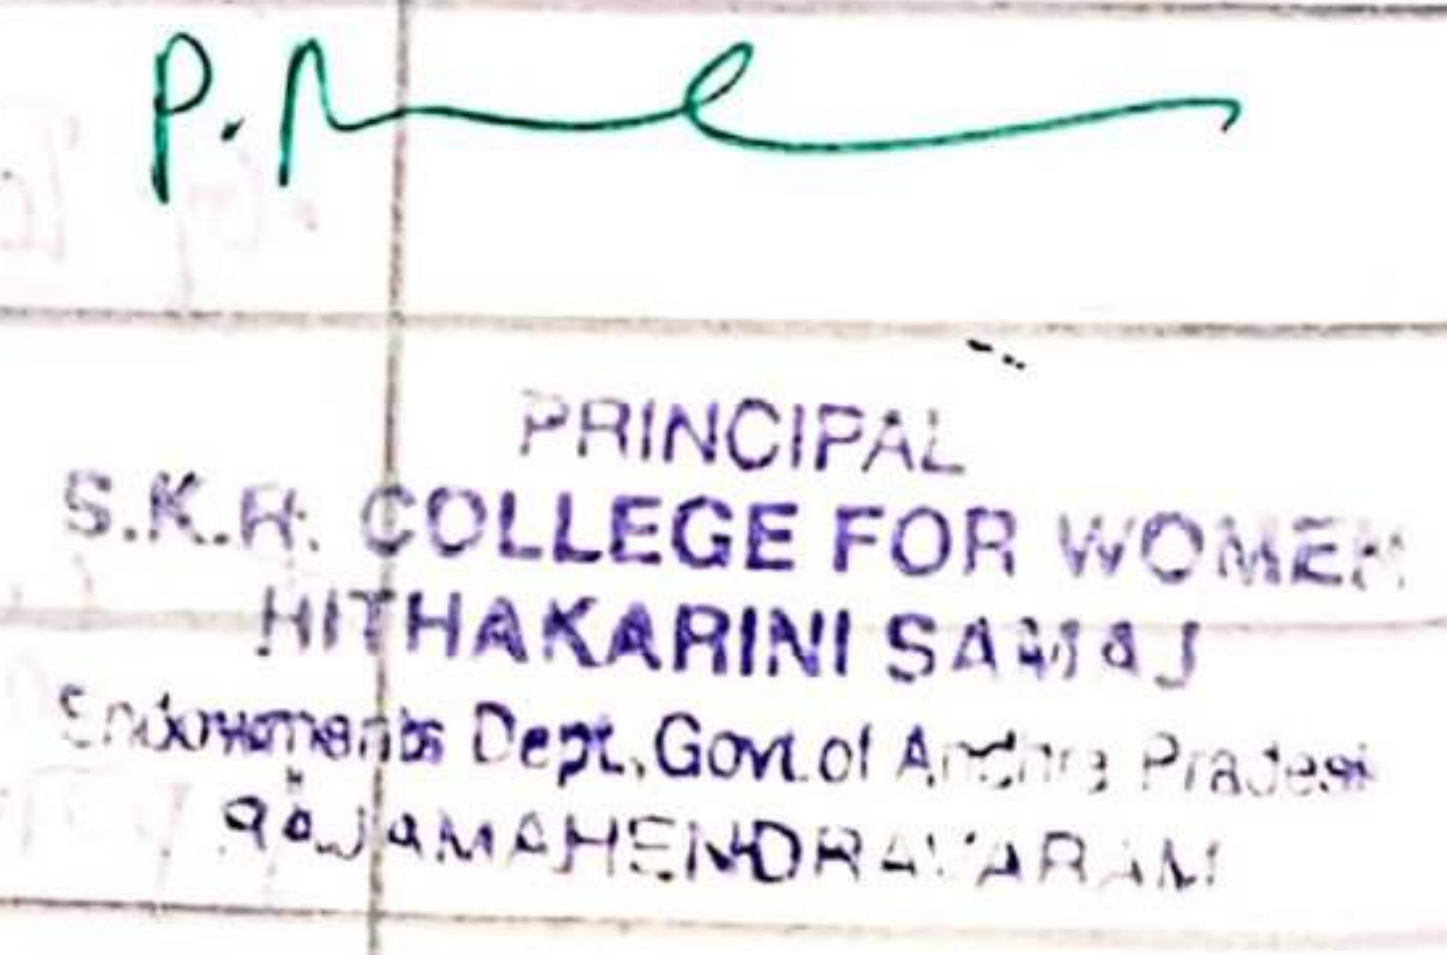 PRINCIPAL
S.K.R. COLLEGE FOR WOMEN
HITHAKARINI SAMAJ
Endowments Dept., Govt. of Andhra Pradesh
RAJAMAHENDRAVARAM